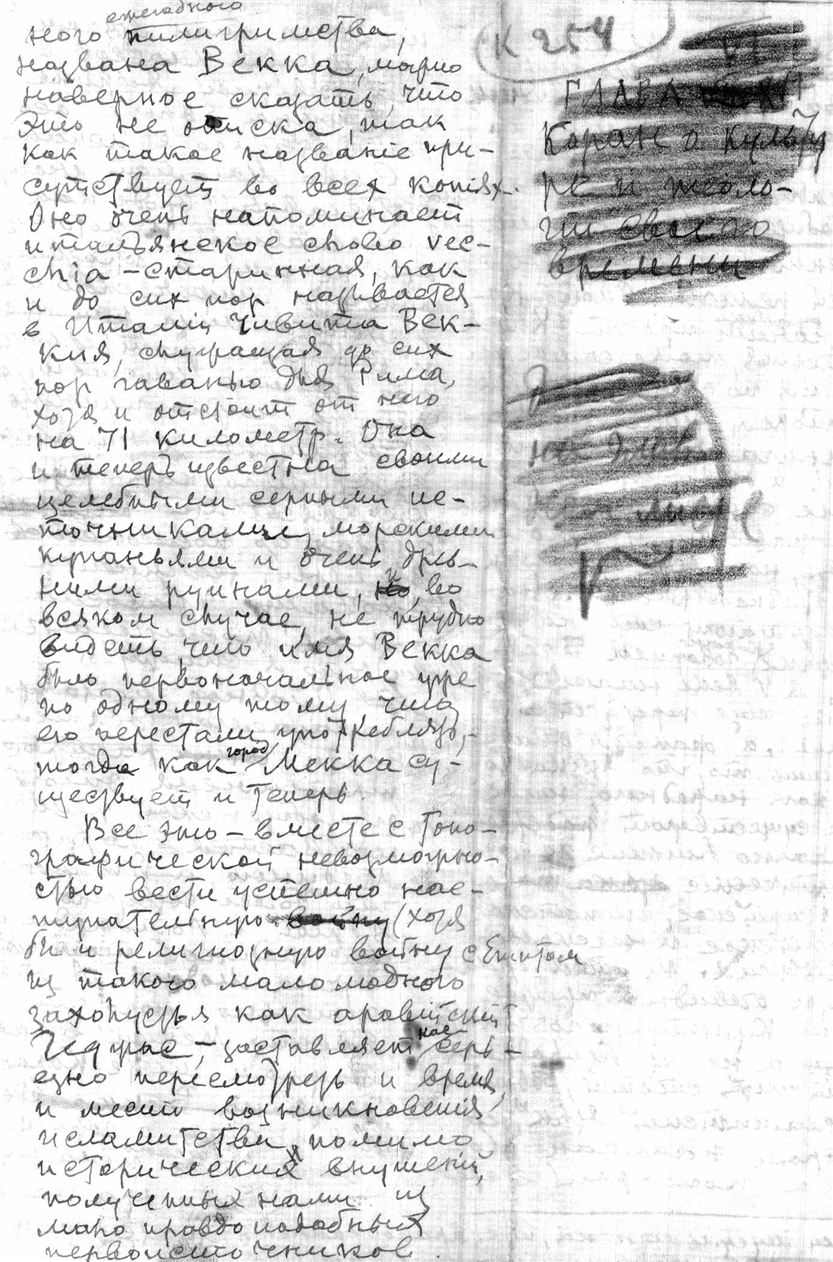 ежегодного
ного пилигримства,
названа Векка, можно
наверное сказать, что
Это не описка, так
как такое название при-
сутствует во всех копиях.
Оно очень напоминает
итальянское слово vec-
chia – старинная, как
и до сих пор называется
в Италии Чивита Век-
кия, служащая до сих
пор гаванью для Рима,
хотя и отстоит от него
на 71 километр. Она
и теперь известна своими
целебными серными ис-
точниками, морскими
купаньями и очень древ-
ними руинами, но во
всяком случае, не трудно
видеть, что имя Векка
было первоначальное уже
по одному тому, что
его перестали употреблять,
тогда как город Мекка су-
ществует и теперь.
Все это – вместе с топо-
графической невозможно-
стью вести успешно нас-
тупательную войну (хотя
бы и религиозную войну с Египтом
из такого маломодного
захолустья как аравийский
Геджас, – заставляет нас серь-
езно пересмотреть и время,
и место возникновения
исламитства, помимо
исторических внушений,
полученных нами из
мало правдоподобных
первоисточников.
К 254
VII
ГЛАВА XII
Коран о культу
ре и теоло-
гии своего
времени